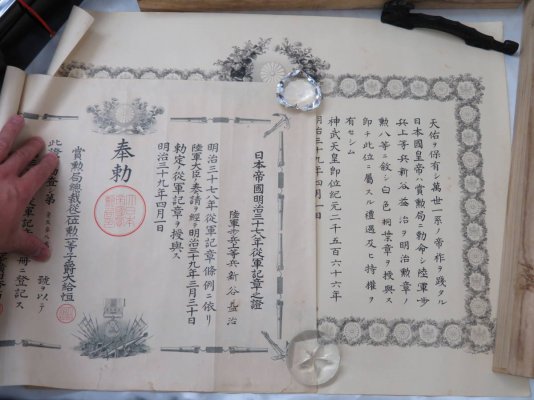 天佑ヲ保有シ萬世一系ノ帝祚ヲ踐タル
日本國皇帝ハ賞勲局ニ勅命シ陸軍歩
兵上等兵新谷益治ヲ明治勲章ノ
勲八等ニ敘シ白色桐葉章ヲ授與ス
即チ此位ニ屬スル禮遇及ヒ特權ヲ
有セシム
神武天皇即位紀元二千五百六十六年
明治三十九年四月一日
日本帝國明治三十七八年從軍記章之證
陸軍歩兵上等兵新谷益治
明治三十七八年從軍記章條例ニ依リ
陸軍大臣ノ奏請ヲ經テ明治三十九年三月三十日
勅定ノ從軍記章ヲ授與ス
明治三十九年四月一日
奉勅
賞勲局總裁從二位勲一等子爵大給恒
此證
號ヲ以テ
從軍記
冊ニ登記ス